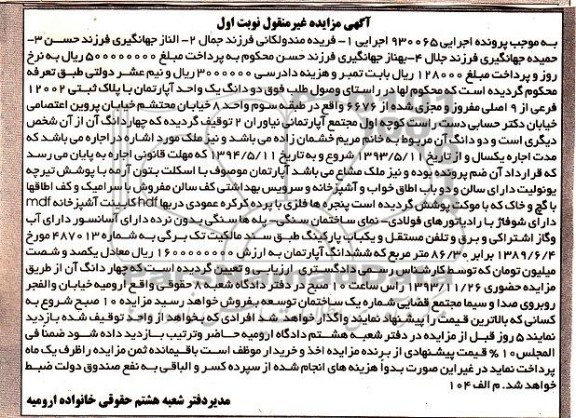 آگهی مزایده غیرمنقول نوبت اول
به موجب پرونده اجرایی ۹۳۰۰۶۵ اجرایی ۱- فریده مندولکانی فرزند جمال ۲- الناز جهانگیری فرزند حسن ۳-
حمیده جهانگیری فرزند جلال ۴-بهناز جهانگیری فرزند حسن محکوم به پرداخت مبلغ ۵۰۰۰۰۰۰۰۰ ریال به نرخ
روز و پرداخت مبلغ ۱۲۸۰۰۰ ریال بابت تمبر و هزینه دادرسی ۳۰۰۰۰۰۰ ریال و نیم عشر دولتی طبق تعرفه
محکوم گردیده است که محکوم لها در راستای وصول طلب فوق دو دانگ یک واحد آپارتمان با پلاک ثبتی ۱۲۰۰۲
فرعی از ۹ اصلی مفروز و مجزی شده از ۶۶۷۶ واقع در طبقه سوم واحد ۸ خیابان محتشم خیابان پروین اعتصامی
خیابان دکتر حسابی دست راست کوچه اول مجتمع آپارتمانی نیاوران ۲ توقیف گردیده که چهار دانگ آن از آن شخص
دیگری است و دو دانگ آن مربوط به خانم مریم خشمان زاده می باشد و نیز ملک مورد اشاره در اجاره می باشد که
مدت اجاره یکسال و از تاریخ ۱۳۹۳/۵/۱۱ شروع و به تاریخ ۱۳۹۴/۵/۱۱ که مهلت قانونی اجاره به پایان می رسد
که قرارداد آن ضم پرونده بوده و نیز ملک مشاع می باشد آپارتمان موصوف با اسکلت بتون آرمه با پوشش تیرچه
یونولیت دارای سالن و دو باب اطاق خواب و آشپزخانه و سرویس بهداشتی کف سالن مفروش با سرامیک و کف اطاقها
با گچ و خاک که با موکت پوشش گردیده است پنجره ها فلزی با پرده کرکره عمودی دربها hdf کابینت آشپزخانه mdf
دارای شوفاژ با رادیاتورهای فولادی- نمای ساختمان سنگی- پله ها سنگی بدون نرده دارای آسانسور دارای آب
وگاز اشتراکی و برق و تلفن مستقل و یکباب پارکینگ طبق سند مالکیت تک برگی به شماره ۴۸۷۰۱۳ مورخ
۱۳۸۹/۶/۴ برابر ۸۶/۳۰ متر مربع که ششدانگ آپارتمان به ارزش ۱۶۰۰۰۰۰۰۰۰ ریال معادل یکصد و شصت
میلیون تومان که توسط کارشناس رسمی دادگستری ارزیابی و تعیین گردیده است که چهار دانگ آن از طریق
مزایده حضوری ۱۳۹۳/۱۱/۲۶ راس ساعت ۱۰ صبح در دفتر دادگاه شعبه ۸ حقوقی واقع ارومیه خیابان والفجر
روبروی صدا و سیما مجتمع قضایی شماره یک ساختمان توسعه بفروش خواهد رسید مزایده ۱۰ صبح شروع به
کسانی که بالاترین قیمت را پیشنهاد نمایند واگذار خواهد شد افرادی که بخواهد از واحد توقیف شده بازدید
نمایند ۵ روز قبل از مزایده در دفتر شعبه هشتم دادگاه ارومیه حاضر وترتیب بازدید داده شود ضمناً فی
المجلس ۱۰ % قیمت پیشنهادی از برنده مزایده اخذ و خریدار موظف است باقیمانده ثمن مزایده را ظرف یک ماه
پرداخت نماید در غیر این صورت بدوا هزینه های انجام شده از سپرده کسر و الباقی به نفع صندوق دولت ضبط
خواهد شد. م الف ۱۰۴
مدیر دفتر شعبه هشتم حقوقی خانواده ارومیه